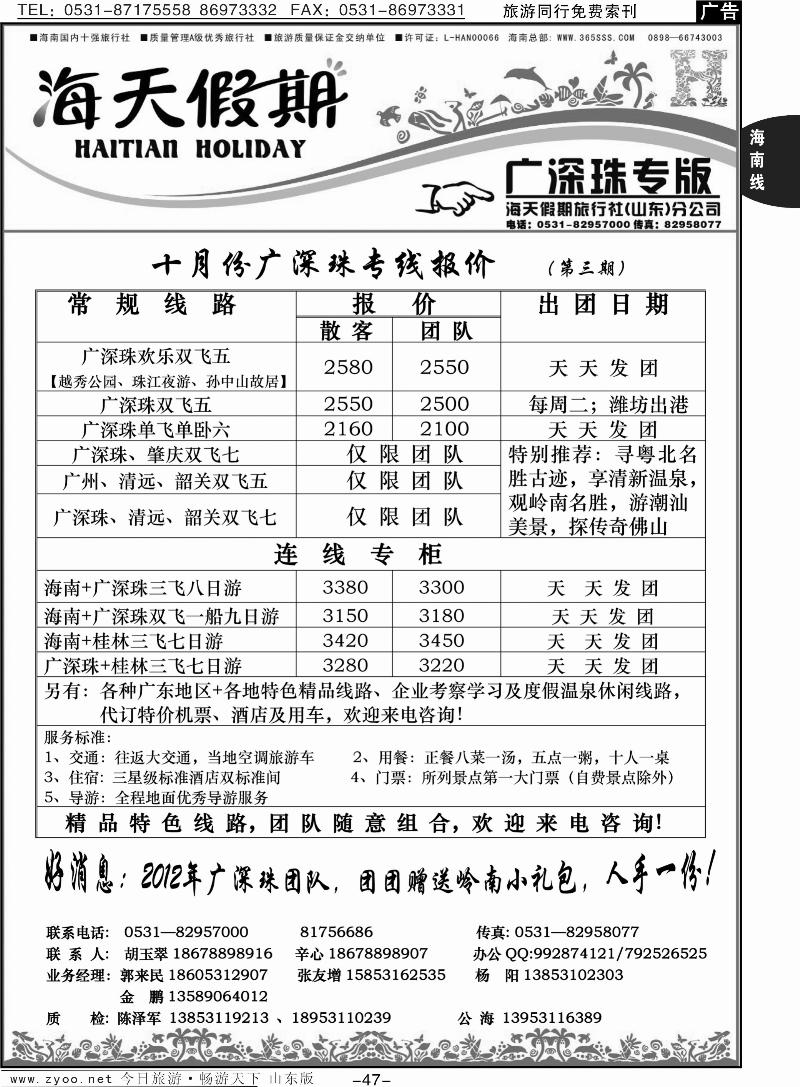 TEL: 0531-87175558 86973332 FAX: 0531-86973331 旅游同行免费索刊 广告
■海南国内十强旅行社 ■质量管理A级优秀旅行社 ■旅游质量保证金交纳单位 ■许可证：L-HAN00066 海南总部: WWW.365SSS.COM 0898—66743003
海天假期
HAITIAN HOLIDAY
H
海南线
广深珠专版
海天假期旅行社(山东)分公司
电话：0531-82957000 传真：82958077
十月份广深珠专线报价 （第三期）
常规线路 报价 出团日期
散客 团队
广深珠欢乐双飞五
【越秀公园、珠江夜游、孙中山故居】 2580 2550 天天发团
广深珠双飞五 2550 2500 每周二；潍坊出港
广深珠单飞单卧六 2160 2100 天天发团
广深珠、肇庆双飞七 仅限团队
广州、清远、韶关双飞五 仅限团队
广深珠、清远、韶关双飞七 仅限团队
特别推荐：寻粤北名
胜古迹，享清新温泉，
观岭南名胜，游潮汕
美景，探传奇佛山
连线专柜
海南+广深珠三飞八日游 3380 3300 天天发团
海南+广深珠双飞一船九日游 3150 3180 天天发团
海南+桂林三飞七日游 3420 3450 天天发团
广深珠+桂林三飞七日游 3280 3220 天天发团
另有：各种广东地区+各地特色精品线路、企业考察学习及度假温泉休闲线路，
代订特价机票、酒店及用车，欢迎来电咨询！
服务标准：
1、交通：往返大交通，当地空调旅游车 2、用餐：正餐八菜一汤，五点一粥，十人一桌
3、住宿: 三星级标准酒店双标准间 4、门票：所列景点第一大门票（自费景点除外）
5、导游：全程地面优秀导游服务
精品特色线路，团队随意组合，欢迎来电咨询!
好消息：2012年广深珠团队，团团赠送岭南小礼包，人手一份！
联系电话: 0531—82957000 81756686 传真: 0531—82958077
联系人: 胡玉翠 18678898916 辛心 18678898907 办公QQ:992874121/792526525
业务经理: 郭来民 18605312907 张友增 15853162535 杨阳 13853102303
金鹏 13589064012
质检: 陈泽军 13853119213 、18953110239 公海 13953116389
www.zyoo.net 今日旅游·畅游天下 山东版 -47-